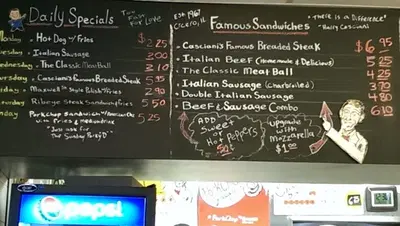 Daily Specials
Too Fat For Love
Monday • Hot Dog w/ Fries $2.25
Tuesday • Italian Sausage 3.00
Wednesday • The Classic Meatball 3.10
Thursday • Casciani's Famous Breaded Steak 5.95
Maxwell St. Style Polish w/ Fries 2.90
Ribeye Steak Sandwich w/ Fries 5.50
Pork Sandwich
with Fries & 5.25
"Just ask for
The Sunday Party D"
Est. 1967
Cicero, IL
Famous Sandwiches
"There is a Difference"
• Casciani's Famous Breaded Steak $6.95
• Italian Beef (Homemade & Delicious) 5.25
• The Classic Meat Ball 4.25
• Italian Sausage (Charbroiled) 3.70
• Double Italian Sausage 4.80
• Beef & Sausage Combo 6.10
ADD
Sweet
or
Hot Peppers
.50¢
upgrade
with
Mozzarella
$1.00
pepsi
ParkChop